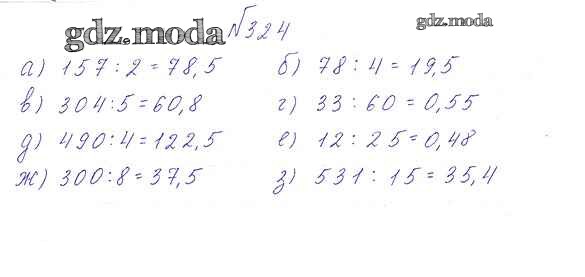 gdz.moda №324 gdz.moda
а) 157 : 2 = 78,5 б) 78 : 4 = 19,5
в) 304 : 5 = 60,8 г) 33 : 60 = 0,55
д) 490 : 4 = 122,5 е) 12 : 25 = 0,48
ж) 300 : 8 = 37,5 з) 531 : 15 = 35,4